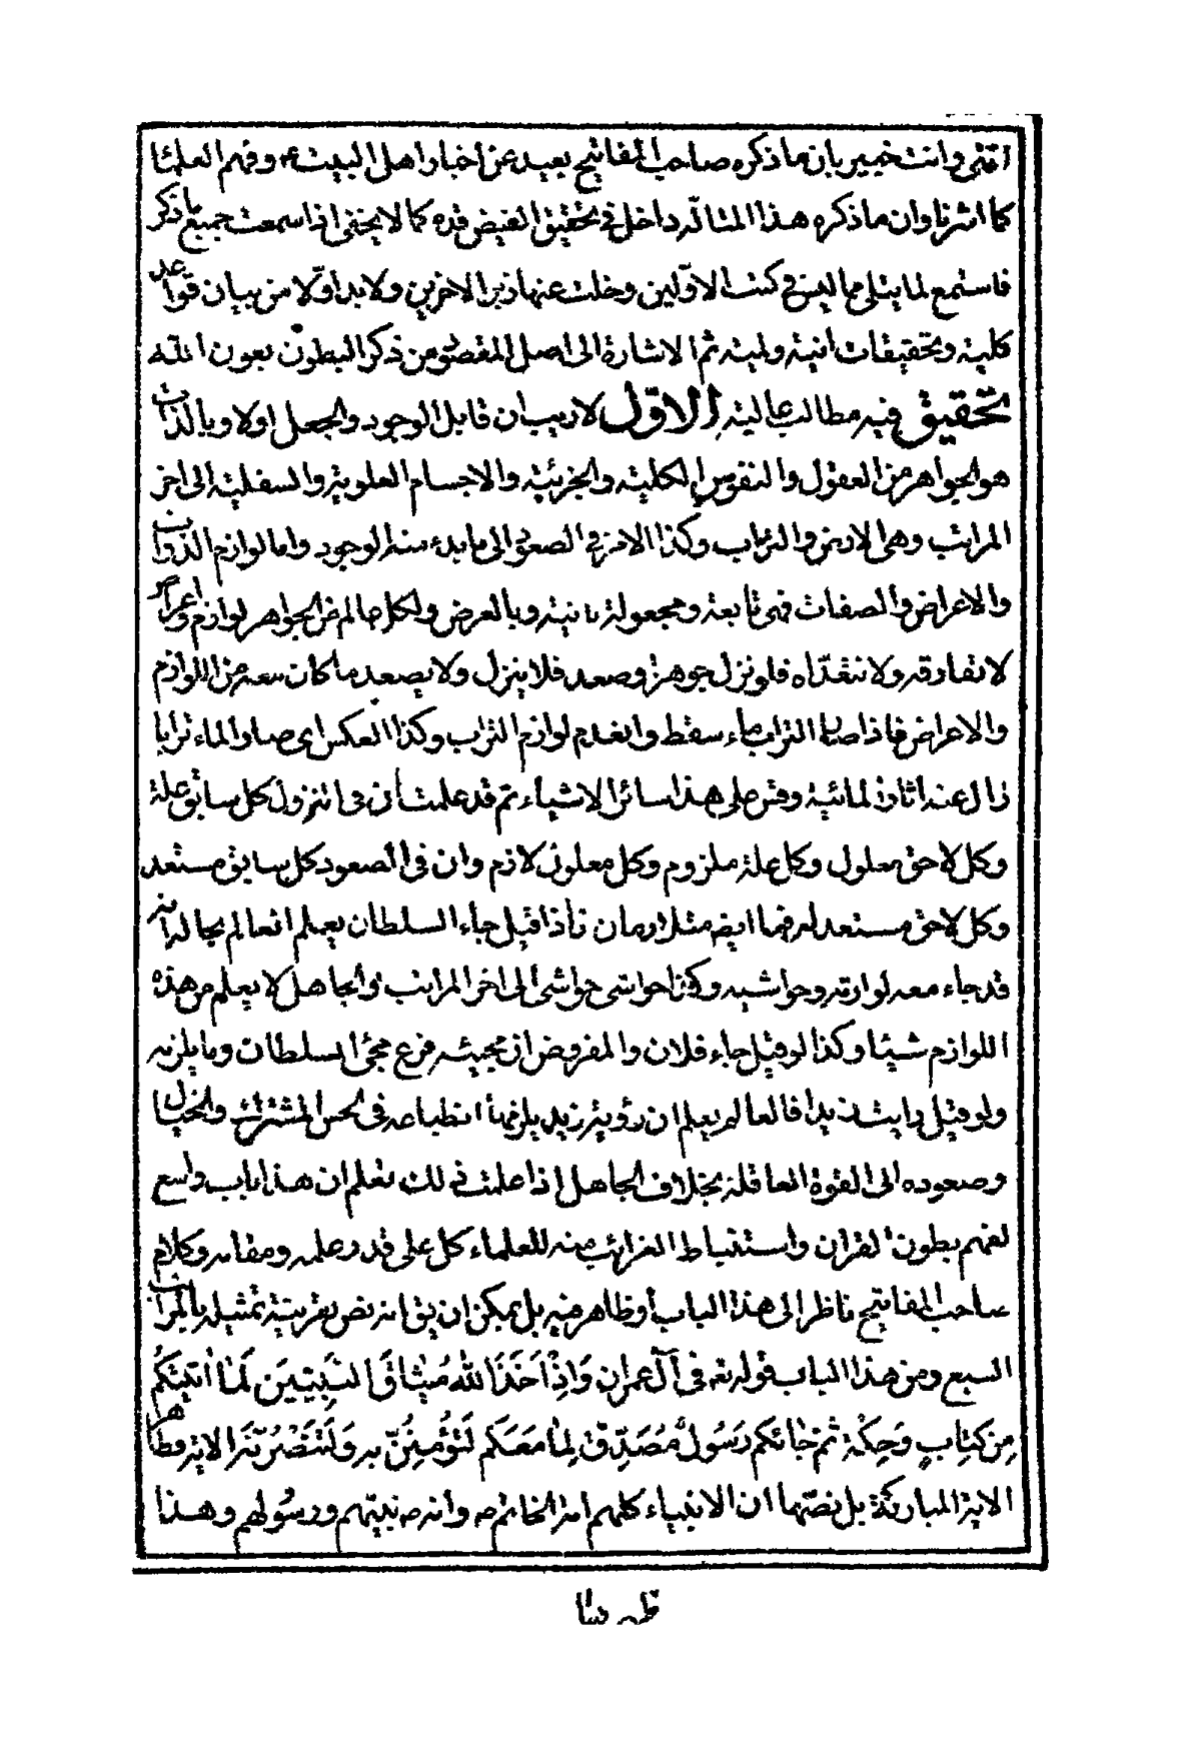 انتهى وانت خبير بان ما ذكره صاحب المفاتيح بعيد عن اخبار اهل البيت ع وفهم العلما
كما اشرنا وان ما ذكره هذا المتاله داخل فى تحقيق الفيض قده كما لا يخفى اذا سمعت جميع ما ذكر
فاستمع لما يتلى مما ليس فى كتب الاوّلين وخلت عنها زبر الاخرين ولا بد اوّلا من بيان قواعد
كلية وتحقيقات انية ولمية ثم الاشارة الى اصل المقصود من ذكر البطون بعون الله
تحقيق فيه مطالب عالية الاوّل لا ريب ان قابل الوجود والجعل اولا وبالذات
هو الجواهر من العقول والنفوس الكلية والجزئية والاجسام العلوية والسفلية الى اخر
المراتب وهى الارض والتراب وكذا الامر فى الصعود الى ما بدء منه الوجود واما لوازم الذوات
والاعراض والصفات فهى تابعة ومجعولة ثانية وبالعرض ولكل عالم من الجواهر لوازم واعراض
لا تفارقه ولا تتعداه فلو نزل جوهر او صعد فلا ينزل ولا يصعد ما كان معه من اللوازم
والاعراض فاذا صار التراب ماء سقط وانعدم لوازم التراب وكذا العكس اى صار الماء ترابا
زال عنه اثار المائية وقس على هذا سائر الاشياء ثم قد علمت ان فى النزول كل سابق علة
وكل لاحق معلول وكل علة ملزوم وكل معلول لازم وان فى الصعود كل سابق مستعد
وكل لاحق مستعد له فهما ايضا متلازمان فاذا قيل جاء السلطان يعلم العالم بحاله انه
قد جاء معه لوازمه وحواشيه وكذا حواشى حواشى الى اخر المراتب والجاهل لا يعلم من هذه
اللوازم شيئا وكذا لو قيل جاء فلان والمفروض ان مجيئه فرع مجئ السلطان وما يلزمه
ولو قيل رايت زيدا فالعالم يعلم ان رؤية زيد يلزمها انطباعه فى الحس المشترك والخيال
وصعوده الى القوة العاقلة بخلاف الجاهل اذا علمت ذلك تعلم ان هذا باب واسع
لفهم بطون القران واستنباط الغرائب منه للعلماء كل على قدر علمه ومقامه وكلام
صاحب المفاتيح ناظر الى هذا الباب او ظاهر فيه بل يمكن ان يق انه نص بقرينة تمثيله بالمراتب
السبع ومن هذا الباب قوله تع فى آل عمران وَاِذْ اَخَذَ اللّٰهُ مِيثاقَ النَّبِيّينَ لَمٰا اٰتَيْتُكُمْ
مِن كِتابٍ وَحِكْمَةٍ ثُمَّ جٰائكم رَسُولٌ مُصَدِّقٌ لِمٰا مَعَكم لَتُؤمِنُنَّ به وَلَتَنْصُرُنَّه الاية وظاهر
الاية المباركة بل نصّها ان الانبياء كلهم امة الخاتم ص وانه ص نبيّهم ورسُولهم وهذا